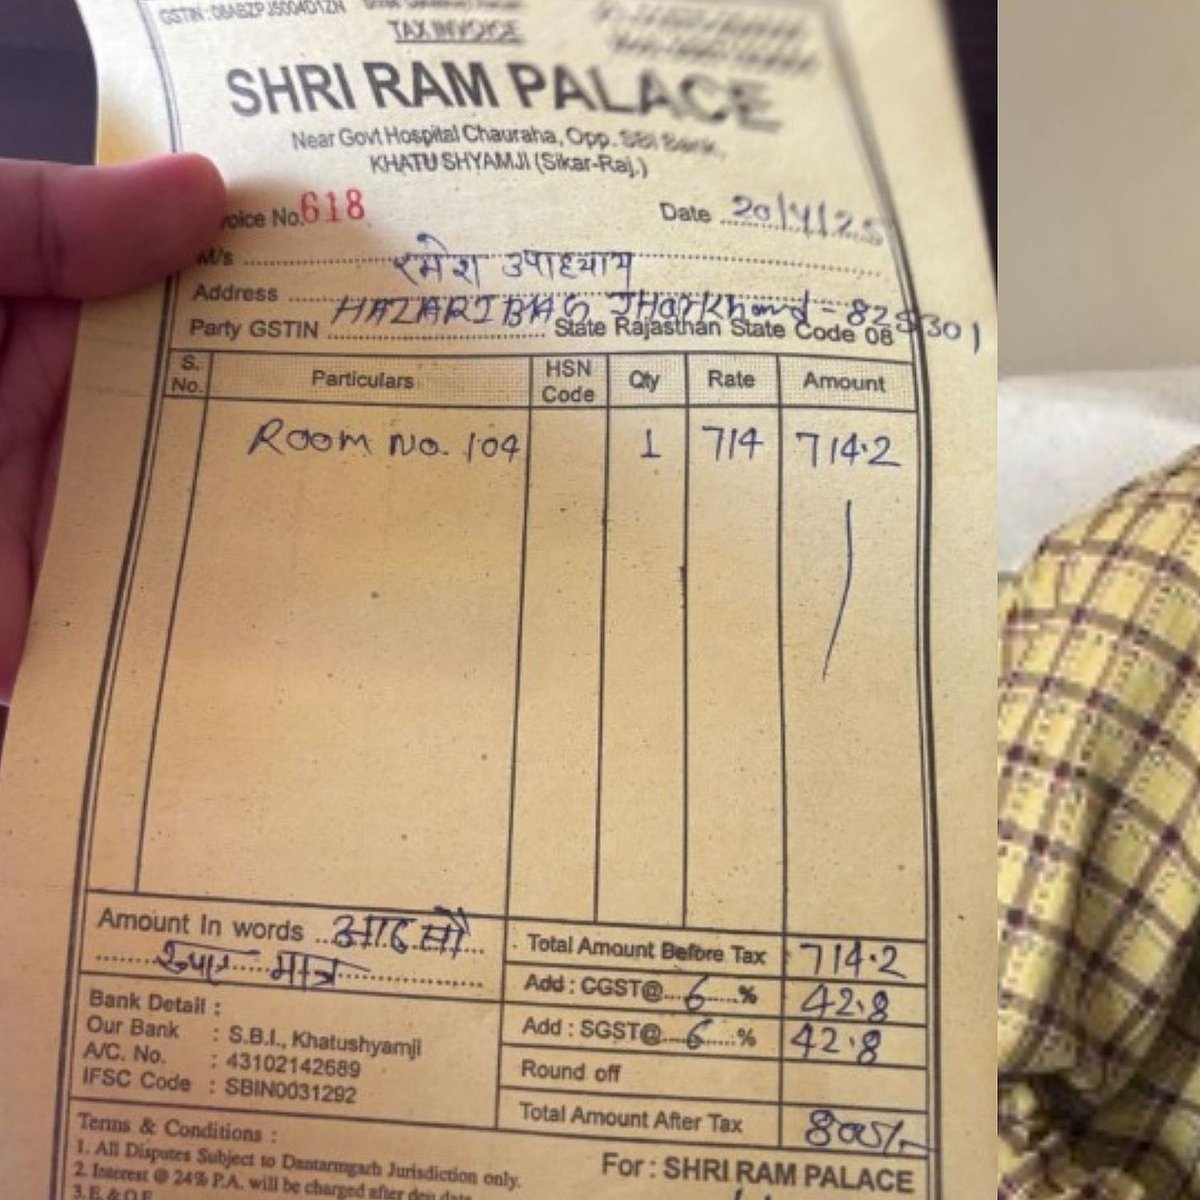 GSTIN : 08ABZPJ5004D1ZN
TAX INVOICE
SHRI RAM PALACE
Near Govt Hospital Chauraha, Opp. SBI Bank,
KHATU SHYAMJI (Sikar-Raj.)
voice No. 618 Date 20/4/25
M/s रमेश उपाध्याय
Address HAZARIBAG Jharkhand - 825301
Party GSTIN State Rajasthan State Code 08
S. No. Particulars HSN Code Qty Rate Amount
Room No. 104 1 714 714.2
Amount In words आठ सौ
रुपए मात्र
Total Amount Before Tax 714.2
Add : CGST@ 6 % 42.8
Add : SGST@ 6 % 42.8
Round off
Total Amount After Tax 800/-
Bank Detail :
Our Bank : S.B.I., Khatushyamji
A/C. No. : 43102142689
IFSC Code : SBIN0031292
Terms & Conditions :
1. All Disputes Subject to Dantarmgarh Jurisdiction only.
2. Interest @ 24% P.A. will be charged after deu date
3. E & O.E.
For : SHRI RAM PALACE